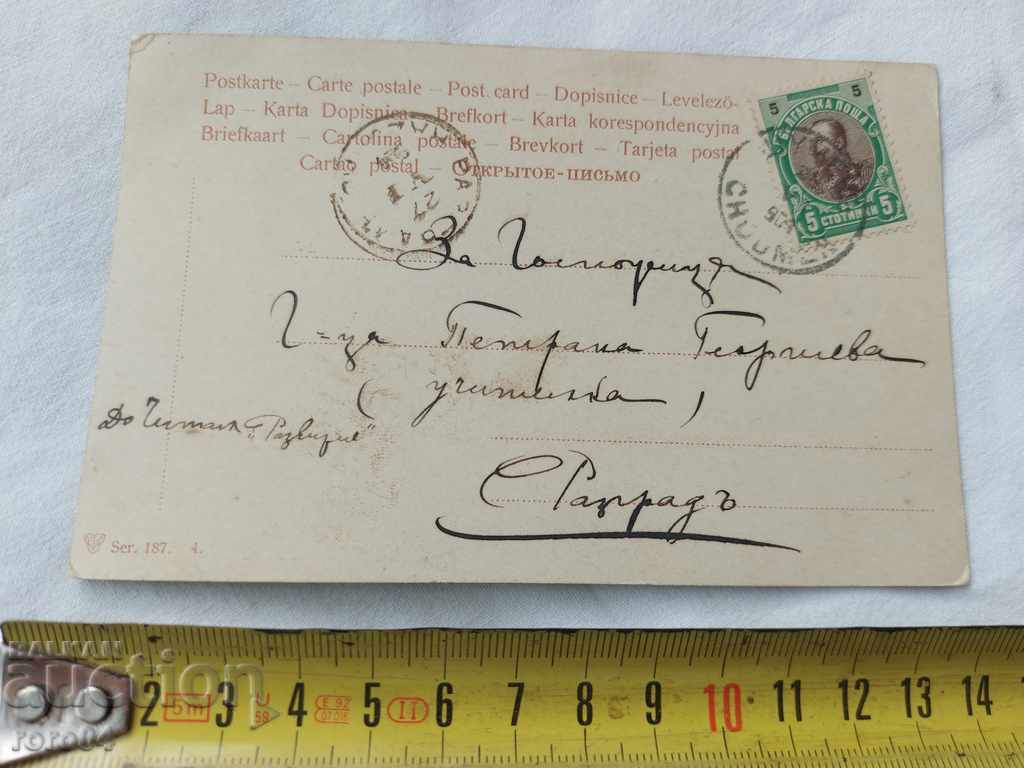 Postkarte – Carte postale – Post card – Dopisnice – Levelező-
Lap – Karta Dopisnica – Brefkort – Karta korespondencyjna
Briefkaart – Cartolina postale – Brevkort – Tarjeta postal
Cartao postal – Открытое-письмо
5 5
БЪЛГАРСКА ПОЩА
5 СТОТИНКИ 5
CHOUMEN
За Госпожица
Г-ца Петрана Георгиева
(учителка)
До Читал. "Развитие"
Разградъ
Ser. 187. 4.
BALKAN
auction
roro04
2 5m 3 4 5 II 6 7 8 9 10 11 12 13 14